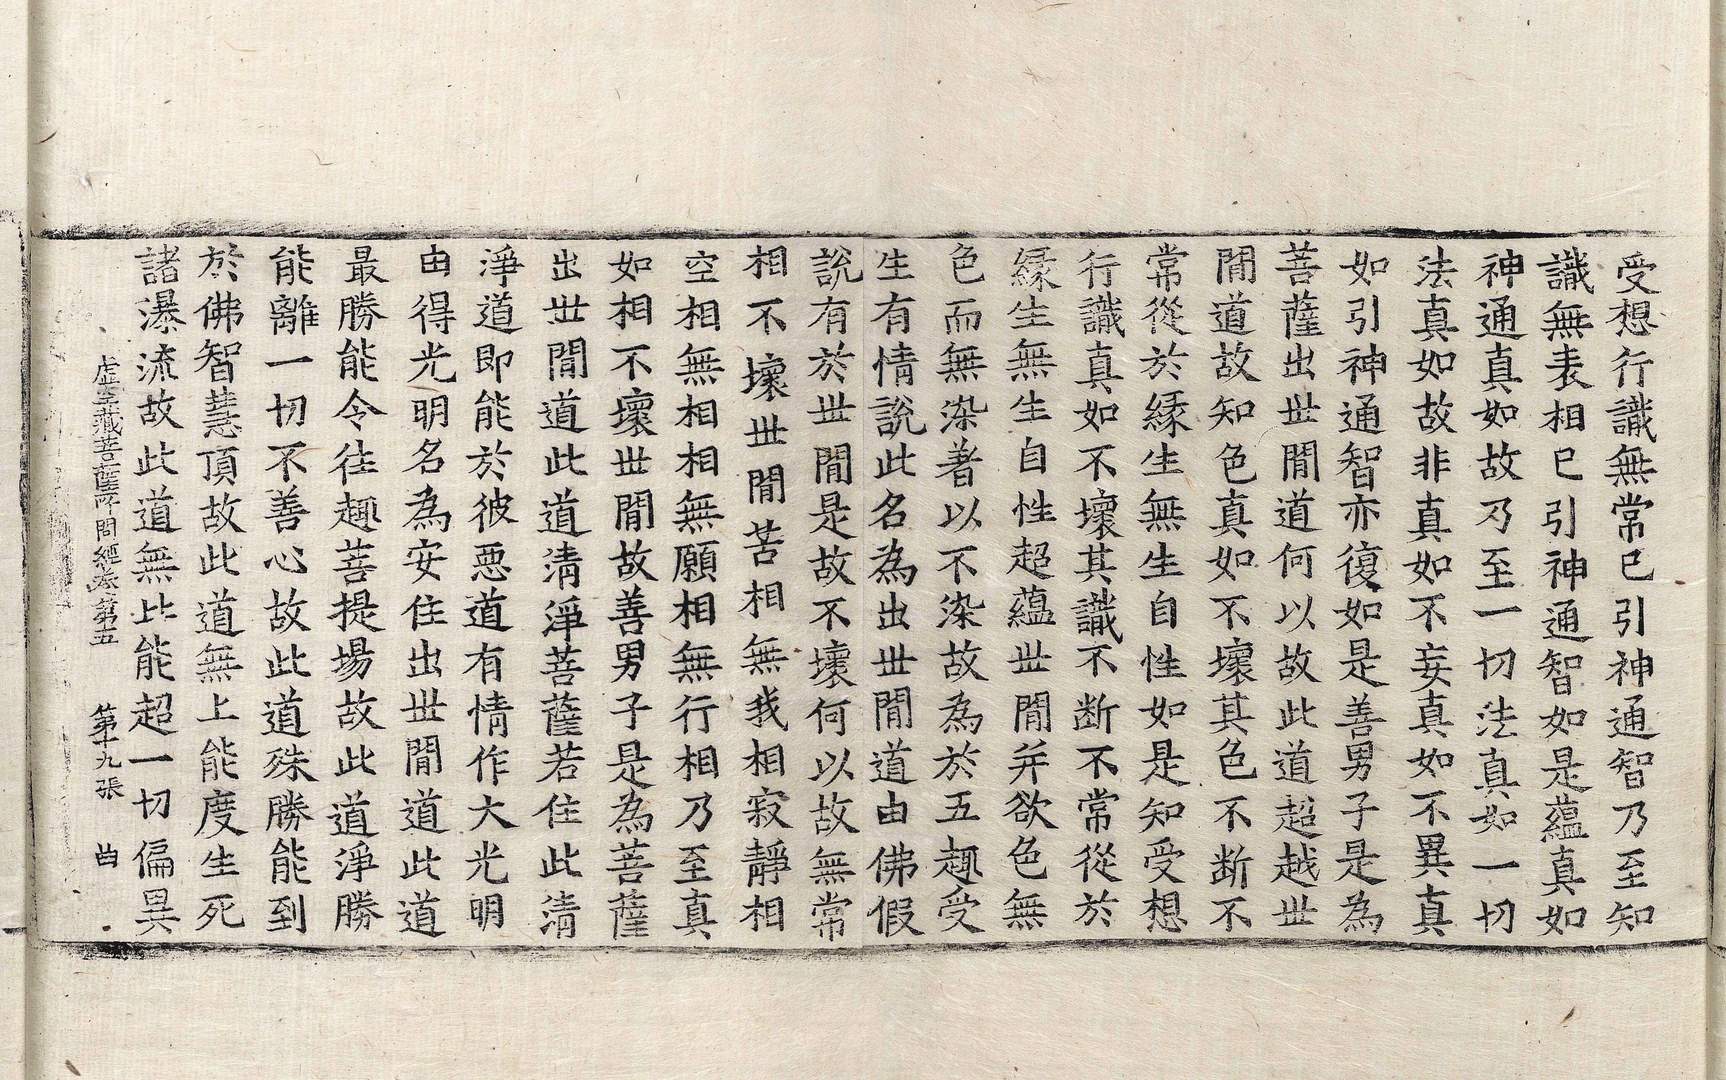 受想行識無常已引神通智乃至知
識無表相已引神通智如是蘊真如
神通真如故乃至一切法真如一切
法真如故非真如不妄真如不異真
如引神通智亦復如是善男子是為
菩薩出世間道何以故此道超越世
間道故知色真如不壞其色不断不
常從於縁生無生自性如是知受想
行識真如不壞其識不断不常從於
縁生無生自性超蘊世間并欲色無
色而無染著以不染故為於五趣受
生有情說此名為出世間道由佛假
說有於世間是故不壞何以故無常
相不壞世間苦相無我相寂靜相
空相無相相無願相無行相乃至真
如相不壞世間故善男子是為菩薩
出世間道此道清淨菩薩若住此清
淨道即能於彼惡道有情作大光明
由得光明名為安住出世間道此道
最勝能令往趣菩提場故此道淨勝
能離一切不善心故此道殊勝能到
於佛智慧頂故此道無上能度生死
諸瀑流故此道無比能超一切偏異
虚空藏菩薩所問經卷第五　第十九張　曲